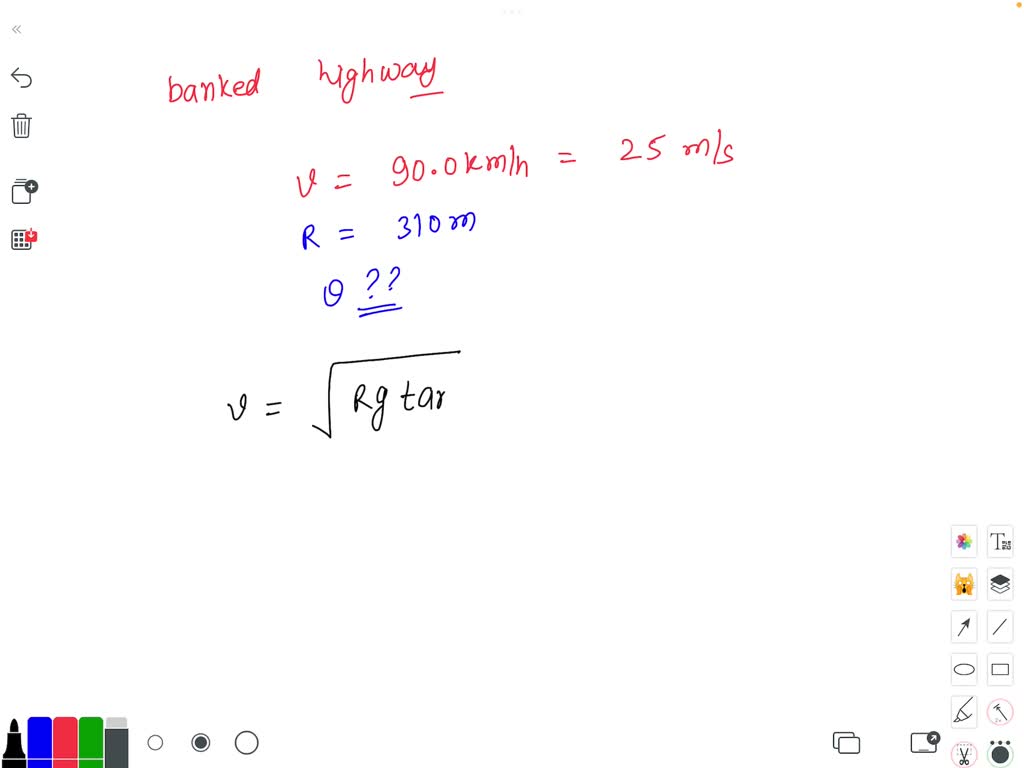 banked highway
v = 90.0km/h = 25 m/s
R = 310m
θ ??
v = √Rg tan